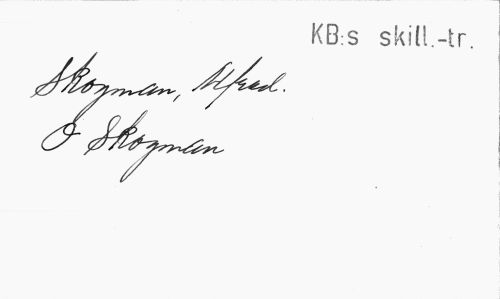 KB:s skill.-tr.
Skogman, Alfred.
J Skogman